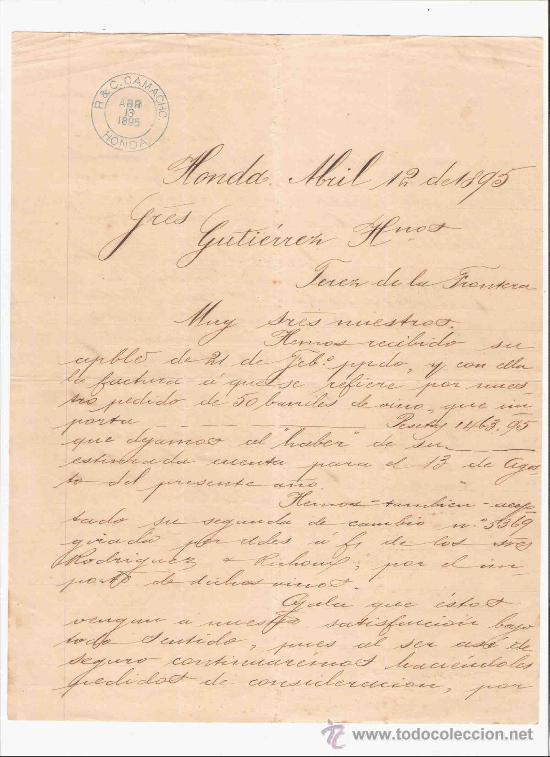 R & C. CAMACHO.
ABR
13
1895
HONDA
Honda Abril 12 de 1895
Sres
Gutiérrez Hnos
Jerez de la Frontera
Muy sres nuestros.
Hemos recibido su
apble de 21 de Feb.o ppdo, y con ella
la factura á que se refiere por nues
tro pedido de 50 barriles de vino, que im
porta Pesetas 1463.95
que dejamos al "haber" de su
estimada cuenta para el 13 de Agos
to del presente año.
Hemos también acep
tado su segunda de cambio n.o 5369
girada por Udes a f/ de los sres
Rodriguez & por el im
porte de dichos vinos.
Ojala que éstos
vengan a nuestra satisfacción bajo
todo sentido, pues al ser así de
seguro continuarémos haciendoles
pedidos de consideracion, por
www.todocoleccion.net